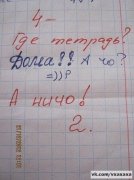 4-
Где тетрадь?
Дома!! А чо?
=))?
А ничо!
2.
vk.com/vsaxaxa